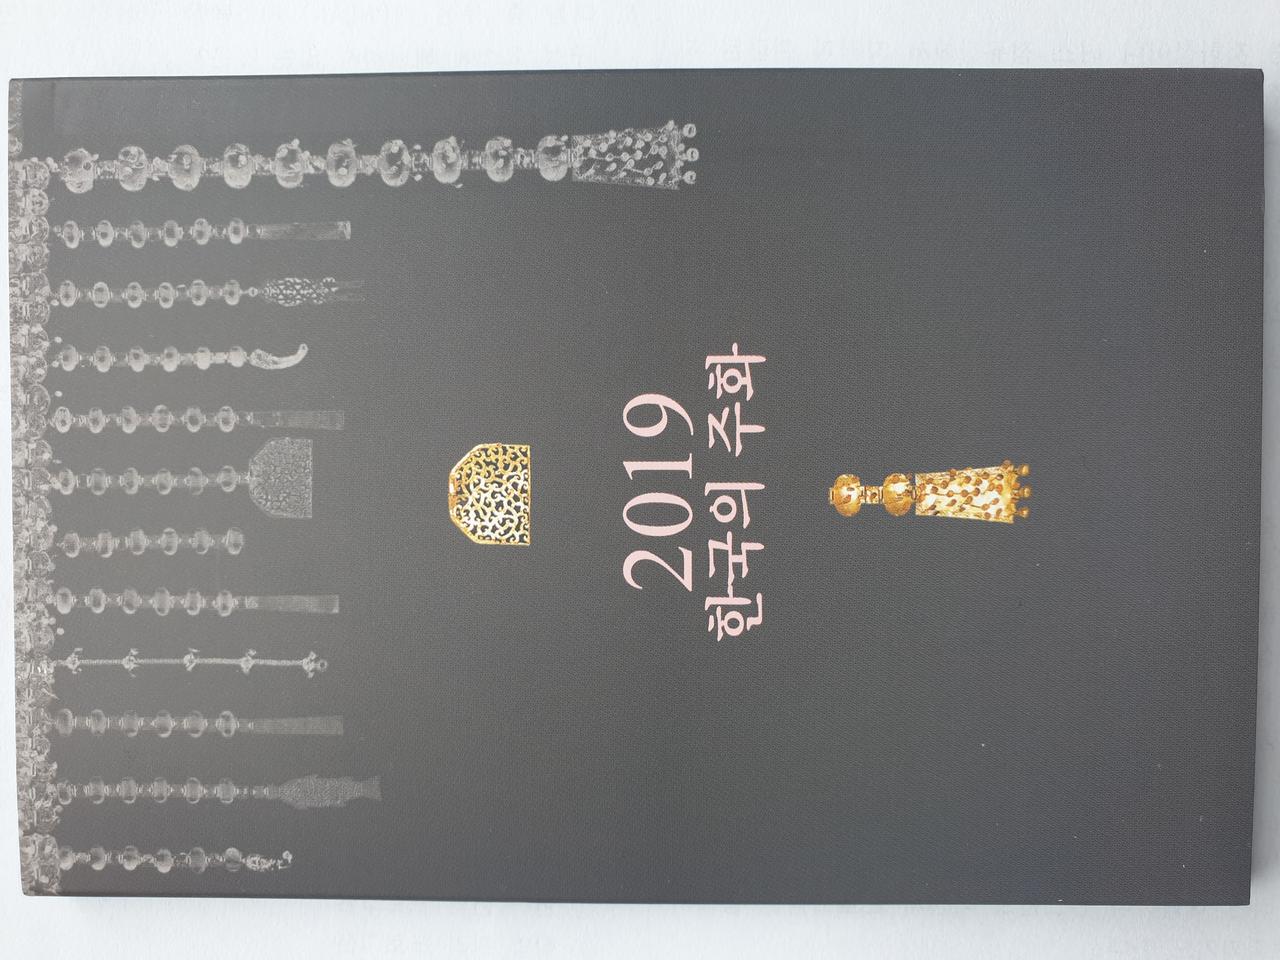 2019
한국의 주화